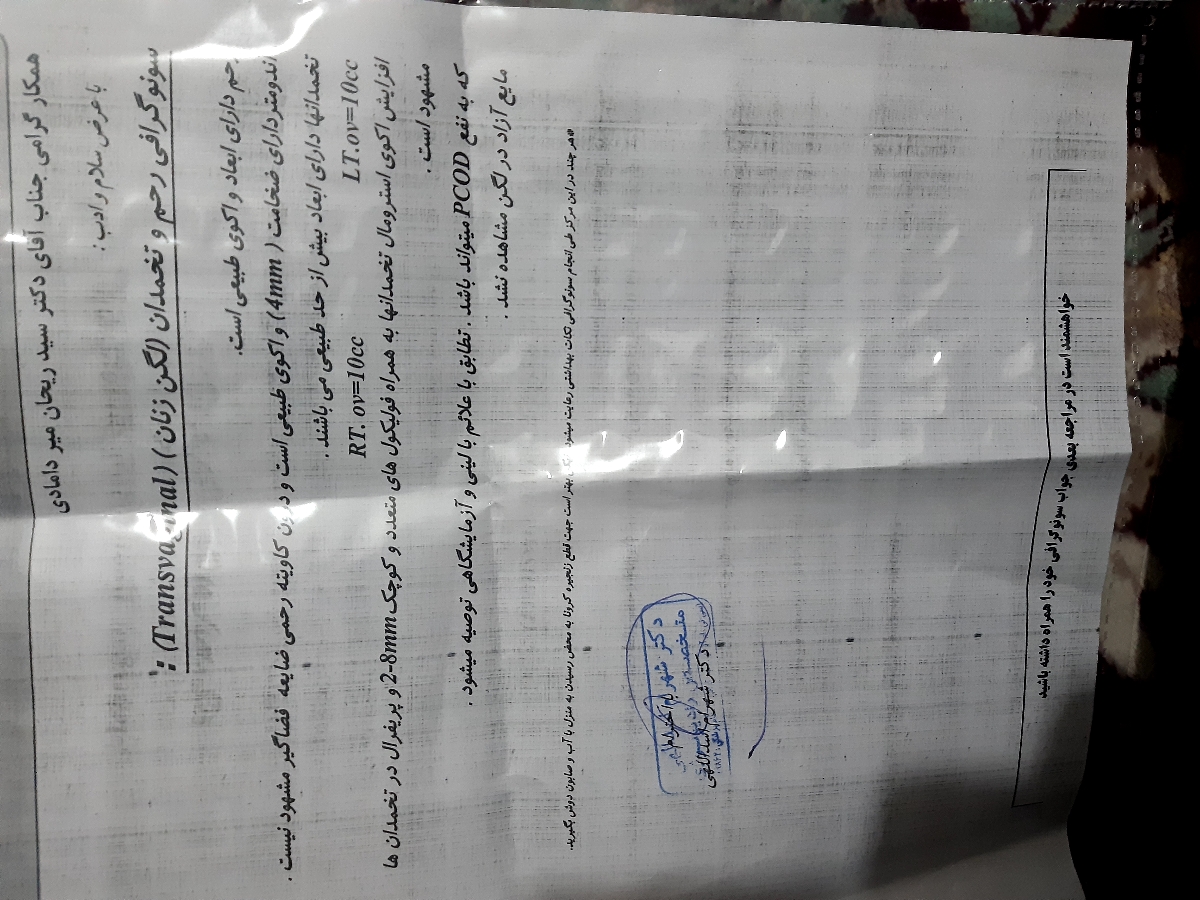 همکار گرامی جناب آقای دکتر سید ریحان میر دامادی
با عرض سلام و ادب :
سونوگرافی رحم و تخمدان (لگن زنان) (Transvaginal) :
رحم دارای ابعاد و اکوی طبیعی است.
اندومتر دارای ضخامت ( 4mm ) و اکوی طبیعی است و درون کاویته رحمی ضایعه فضاگیر مشهود نیست .
تخمدانها دارای ابعاد بیش از حد طبیعی می باشند .
RT. ov=10cc LT.ov=10cc
افزایش اکوی استرومال تخمدانها به همراه فولیکول های متعدد و کوچک 2-8mm و پریفرال در تخمدان ها
مشهود است .
که به نفع PCOD میتواند باشد . تطابق با علائم بالینی و آزمایشگاهی توصیه میشود .
مایع آزاد در لگن مشاهده نشد .
هر چند در این مرکز طی انجام سونوگرافی نکات بهداشتی رعایت میشود بهتر است جهت قطع زنجیره کرونا به محض رسیدن به منزل با آب و صابون دوش بگیرید.
دکتر شهرام
متخصص
دکتر شهرام
خواهشمند است در مراجعه بعدی جواب سونوگرافی خود را همراه داشته باشید